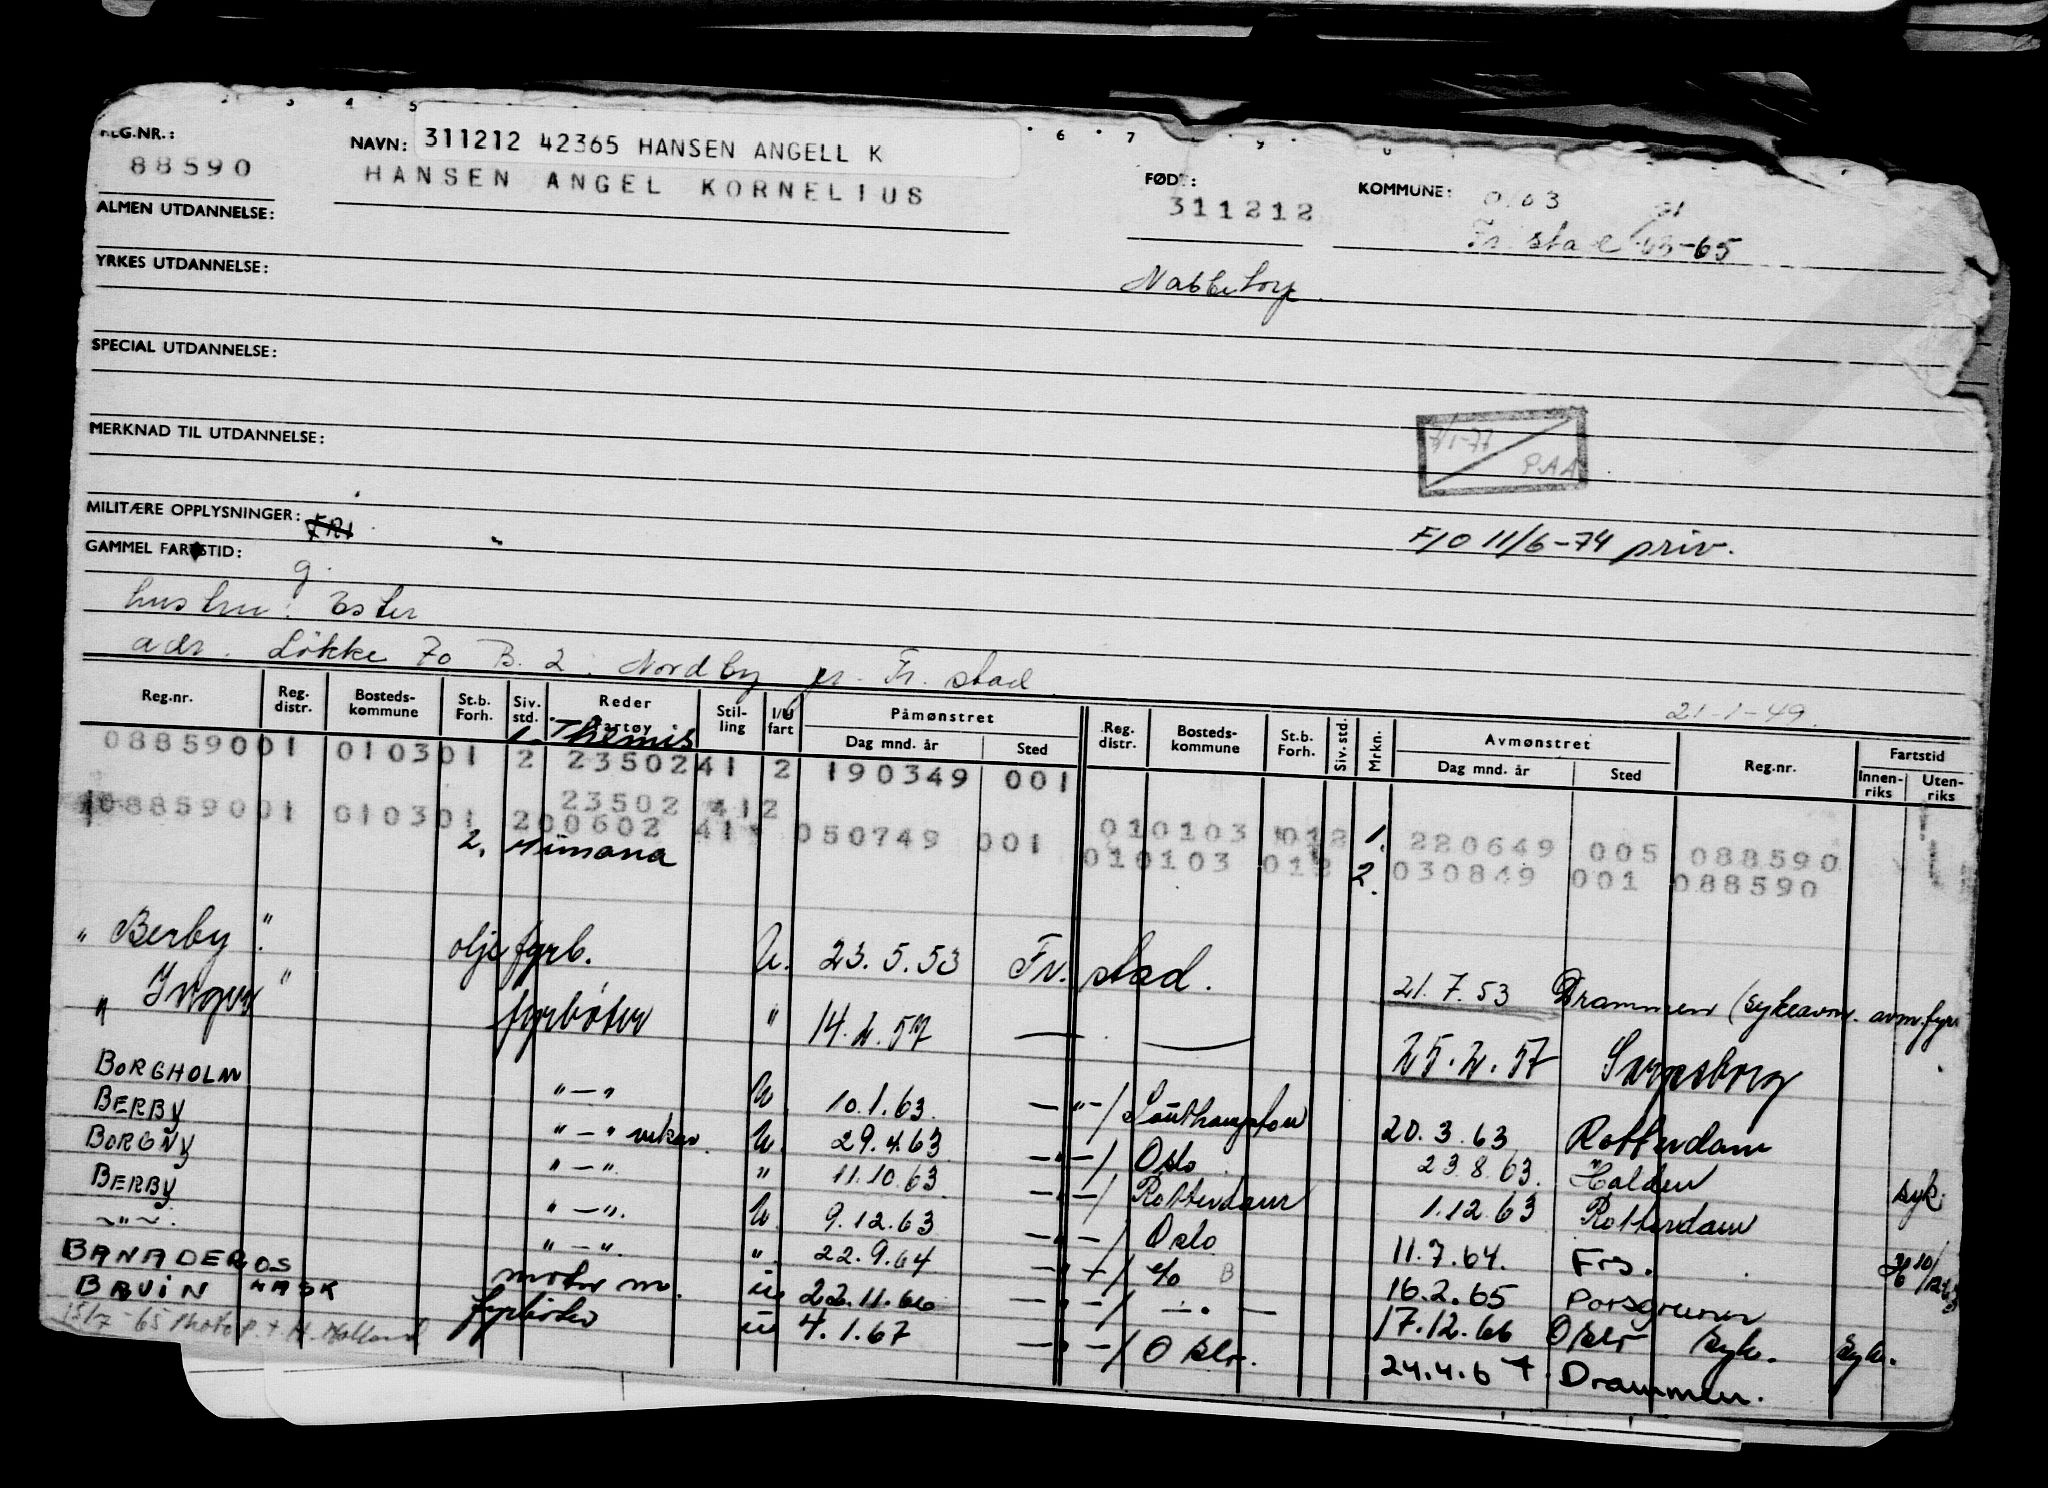 REG.NR.: NAVN: 311212 42365 HANSEN ANGELL K
88590 HANSEN ANGEL KORNELIUS FØDT: 311212 KOMMUNE: 0103
ALMEN UTDANNELSE: Fr.stad 63-65
YRKES UTDANNELSE: Nabbetorp.
SPECIAL UTDANNELSE:
MERKNAD TIL UTDANNELSE: 7/1-77 P.A.A
MILITÆRE OPPLYSNINGER: FRI
F/O 11/6-74 priv.
GAMMEL FARTSTID:
g.
hustru: Ester
adr. Løkke 70 B. 2. Nordby pr. Fr. stad.
21-1-49.
Reg.nr. Reg. distr. Bosteds-kommune St.b. Forh. Siv. std. Reder Fartøy Stil-ling I/U fart Påmønstret Dag mnd. år Sted Reg. distr. Bosteds-kommune St.b. Forh. Siv. std. Mrkn. Avmønstret Dag mnd. år Sted Reg.nr. Fartstid Innen-riks Uten-riks
1. Themis
088590 01 0103 01 2 23502 41 2 190349 001
23502 41 2
088590 01 0103 01 2 00602 41 050749 001 01 0103 01 2 1. 220649 005 088590
2. Nimana 01 0103 01 2 2. 030849 001 088590
" Berby " olje fyrb. U. 23.5.53 Fr. stad. 21.7.53 Drammen (sykeavm. avm. fyrb
" Inger " fyrbøter " 14.2.57 — — 25.2.57 Sarpsborg
BORGHOLM "—" U 10.1.63. —"—/ Southampton 20.3.63 Rotterdam
BERBY "—" vikar. U. 29.4.63 —"—/ Oslo 23.8.63. Halden syk.
BORGNY "—" " 11.10.63. —"—/ Rotterdam 1.12.63 Rotterdam
BERBY "—". U. 9.12.63 —"—/ Oslo 11.7.64. Frs.
—"—. "—". ". 22.9.64 —"—/ 16.2.65 Porsgrunn
BANADEROS motor m. u 22.11.66 —"—/ —"— 17.12.66 Oslo syk. syk.
BRUIN fyrbøter u 4.1.67 —"—/ Oslo. 24.4.67 Drammen.
15/7-65